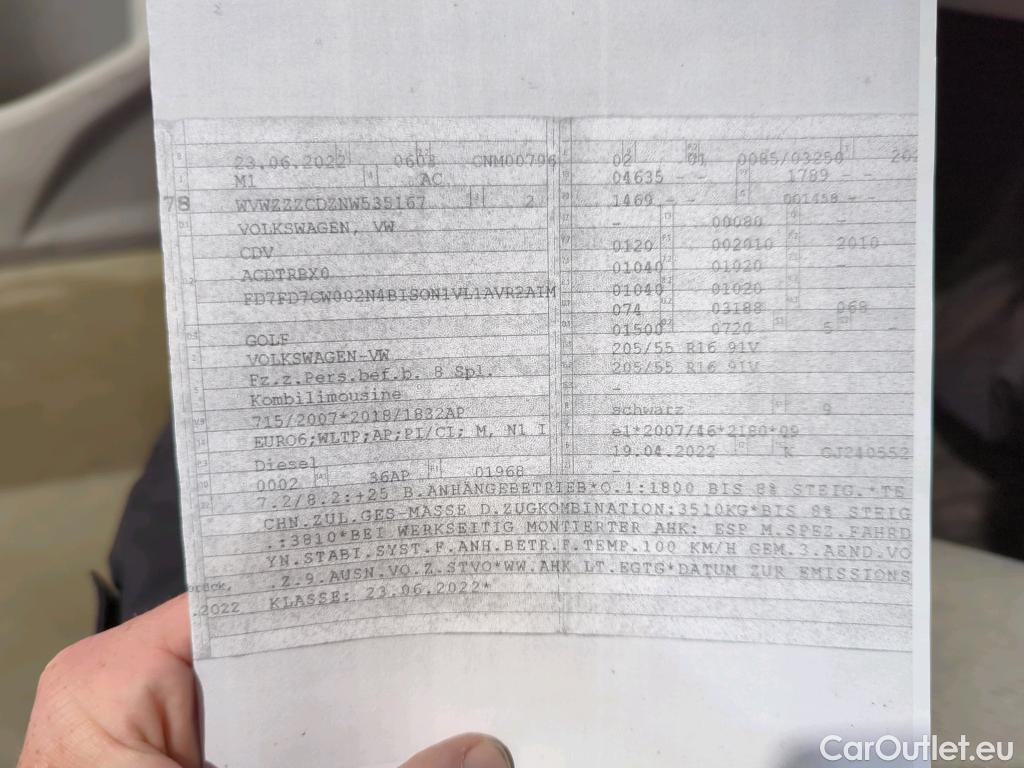 23.06.2022 0603 CNM00796 02 01 0085/03250
M1 AC 04635 - - 1789 - -
78 WVWZZZCDZNW535167 2 1469 - - 001458 - -
VOLKSWAGEN, VW - 00080 -
CDV 0120 002010 2010
ACDTRBX0 01040 01020 -
FD7FD7CW002N4BISON1VL1AVR2A1M 01040 01020 -
074 03188 068
GOLF 01500 0720 5 -
VOLKSWAGEN-VW 205/55 R16 91V
Fz.z.Pers.bef.b. 8 Spl. 205/55 R16 91V
Kombilimousine -
715/2007*2018/1832AP schwarz 9
EURO6;WLTP;AP;PI/CI; M, N1 I e1*2007/46*2180*09
Diesel 19.04.2022 K GJ240552
0002 36AP 01968 -
7.2/8.2:+25 B.ANHÄNGEBETRIEB*O.1:1800 BIS 8% STEIG.*TE
CHN.ZUL.GES-MASSE D.ZUGKOMBINATION:3510KG*BIS 8% STEIG
.:3810*BEI WERKSEITIG MONTIERTER AHK: ESP M.SPEZ.FAHRD
YN.STABI.SYST.F.ANH.BETR.F.TEMP.100 KM/H GEM.3.AEND.VO
.Z.9.AUSN.VO.Z.STVO*WW.AHK LT.EGTG*DATUM ZUR EMISSIONS
.2022 KLASSE: 23.06.2022*
CarOutlet.eu